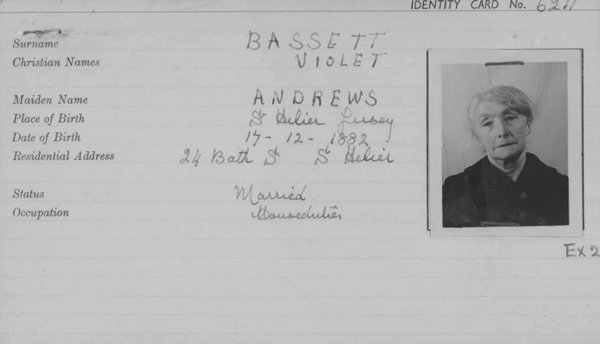 IDENTITY CARD No. 6211
Surname BASSETT
Christian Names VIOLET
Maiden Name ANDREWS
Place of Birth St Helier Jersey
Date of Birth 17-12-1882
Residential Address 24 Bath St St Helier
Status Married
Occupation Houseduties
EX 2